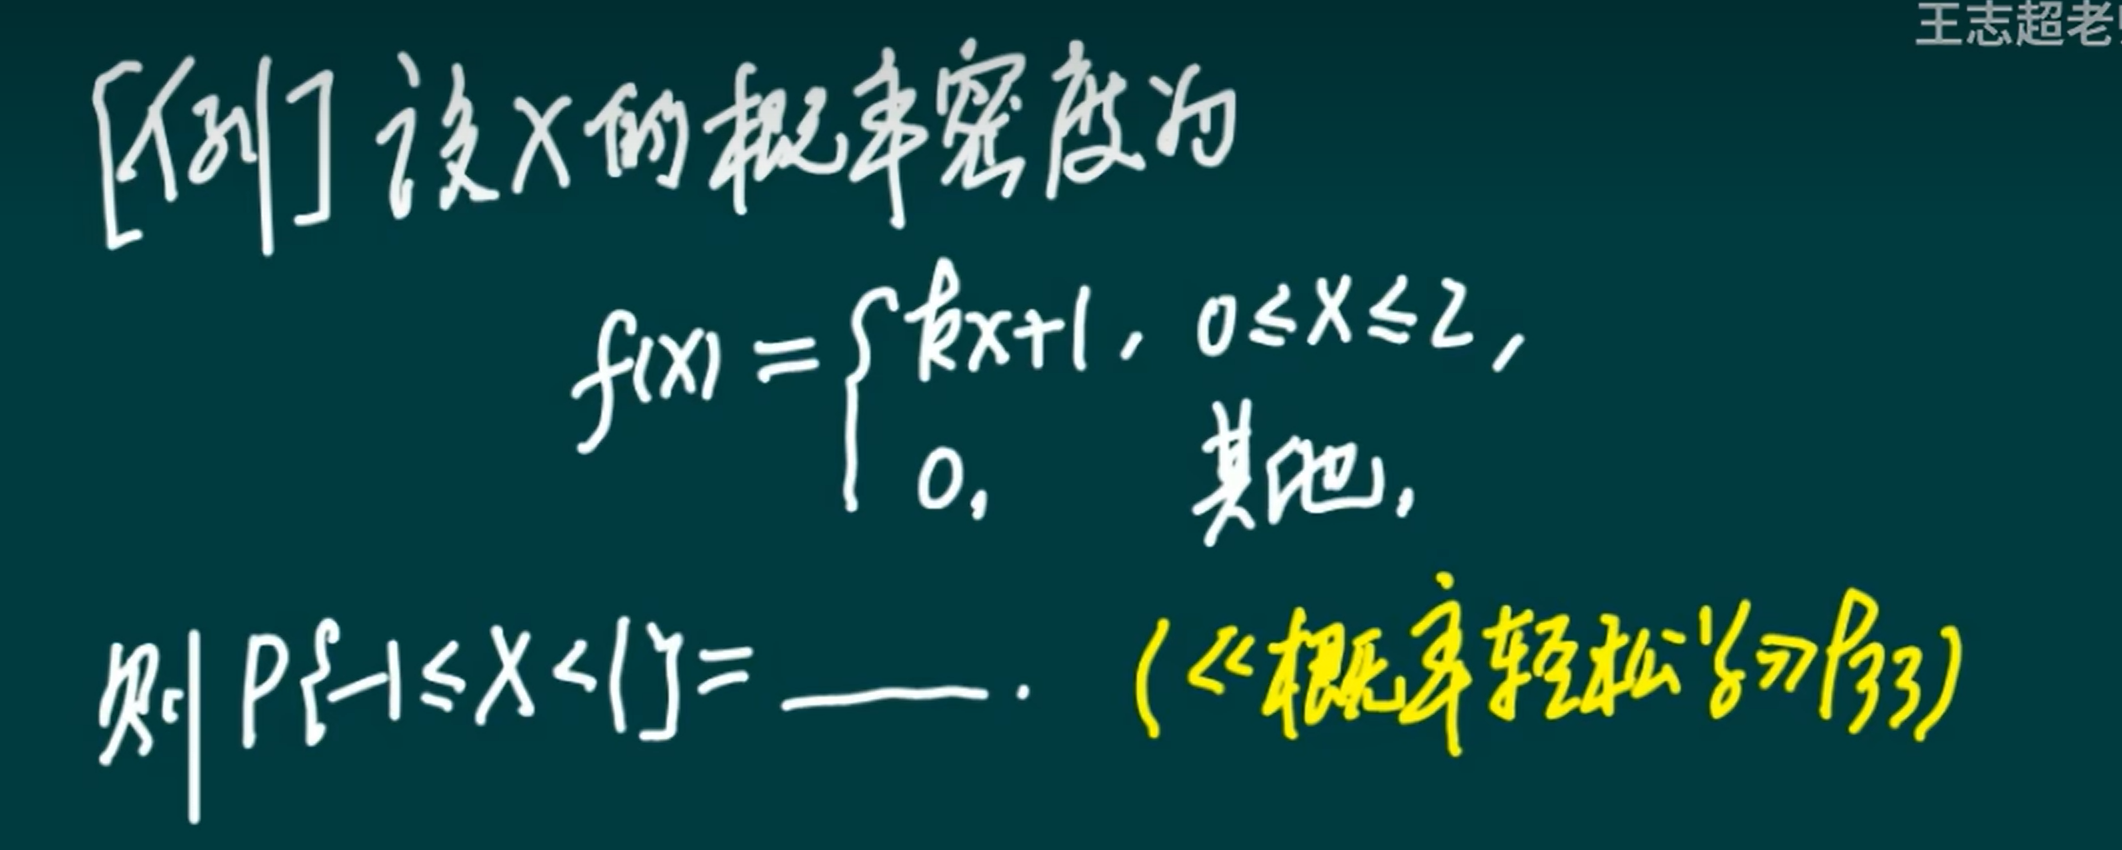 王志超老
[例] 设X的概率密度为
f(x) = { kx+1, 0≤x≤2,
0, 其他,
则 P{-1≤X<1} = ____. (《概率轻松学》P33)